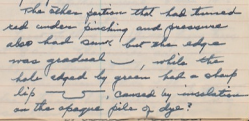 The other portion that had turned
red under pinching and pressure
also had sunk but the edge
was gradual, while the
hole edged by green, had a sharp
lip, caused by insolation
on the opaque pile of dye?